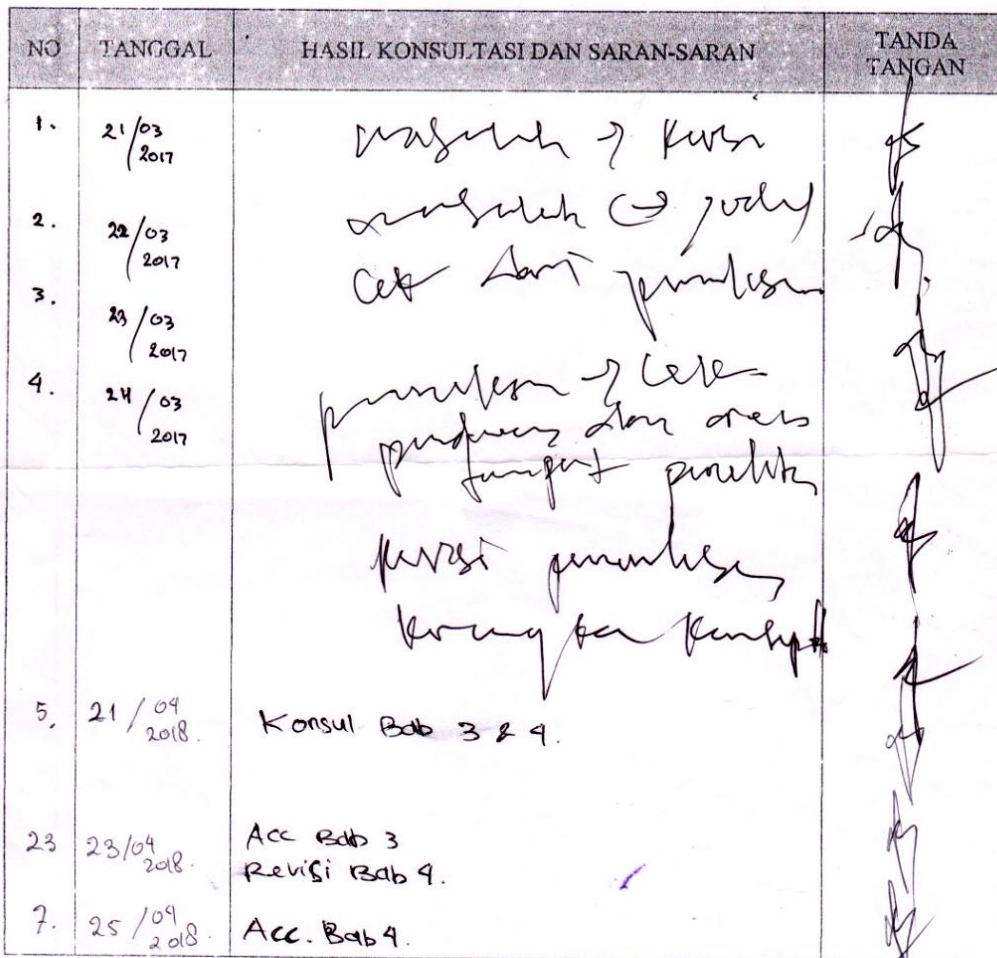 NO TANGGAL HASIL KONSULTASI DAN SARAN-SARAN TANDA TANGAN
1. 21/03 2017 masalah →
2. 22/03 2017 masalah judul
3. 23/03 2017 Cek dari penulisan
4. 24/03 2017 penulisan → Cek
dan
tempat
revisi penulisan
kerangka konsep
5. 21/04 2018. Konsul Bab 3 & 4.
23 23/04 2018. Acc Bab 3
Revisi Bab 4.
7. 25/04 2018. Acc. Bab 4.